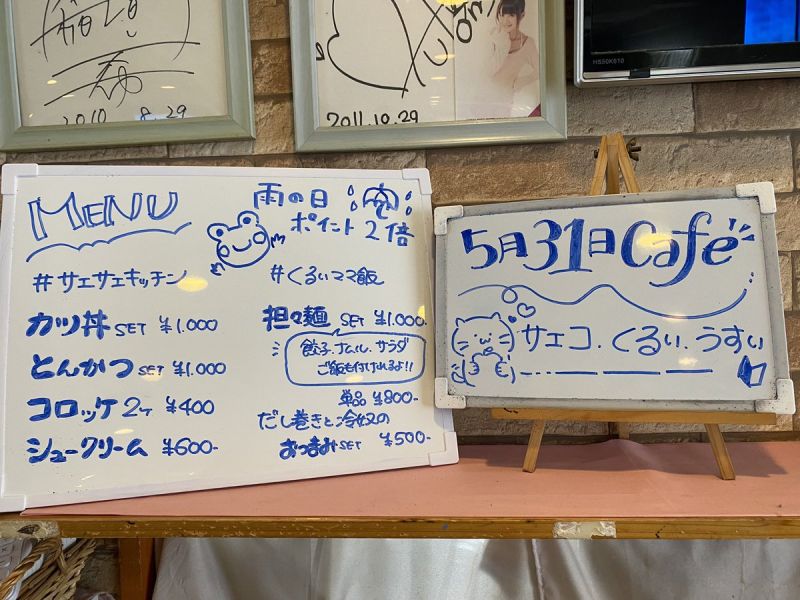 2010 8.29
2011.10.29
HS50K610
MENU
雨の日
ポイント2倍
#サエサエキッチン
カツ丼 SET ¥1.000
とんかつ SET ¥1.000
コロッケ2ケ ¥400
シュークリーム ¥600-
#くるいママ飯
担々麺 SET ¥1.000-
餃子.ナムル.サラダ
ご飯も付けれるよ!!
単品 ¥800-
だし巻きと冷奴の
おつまみSET ¥500-
5月31日Cafe
サエコ.くるい.うすい